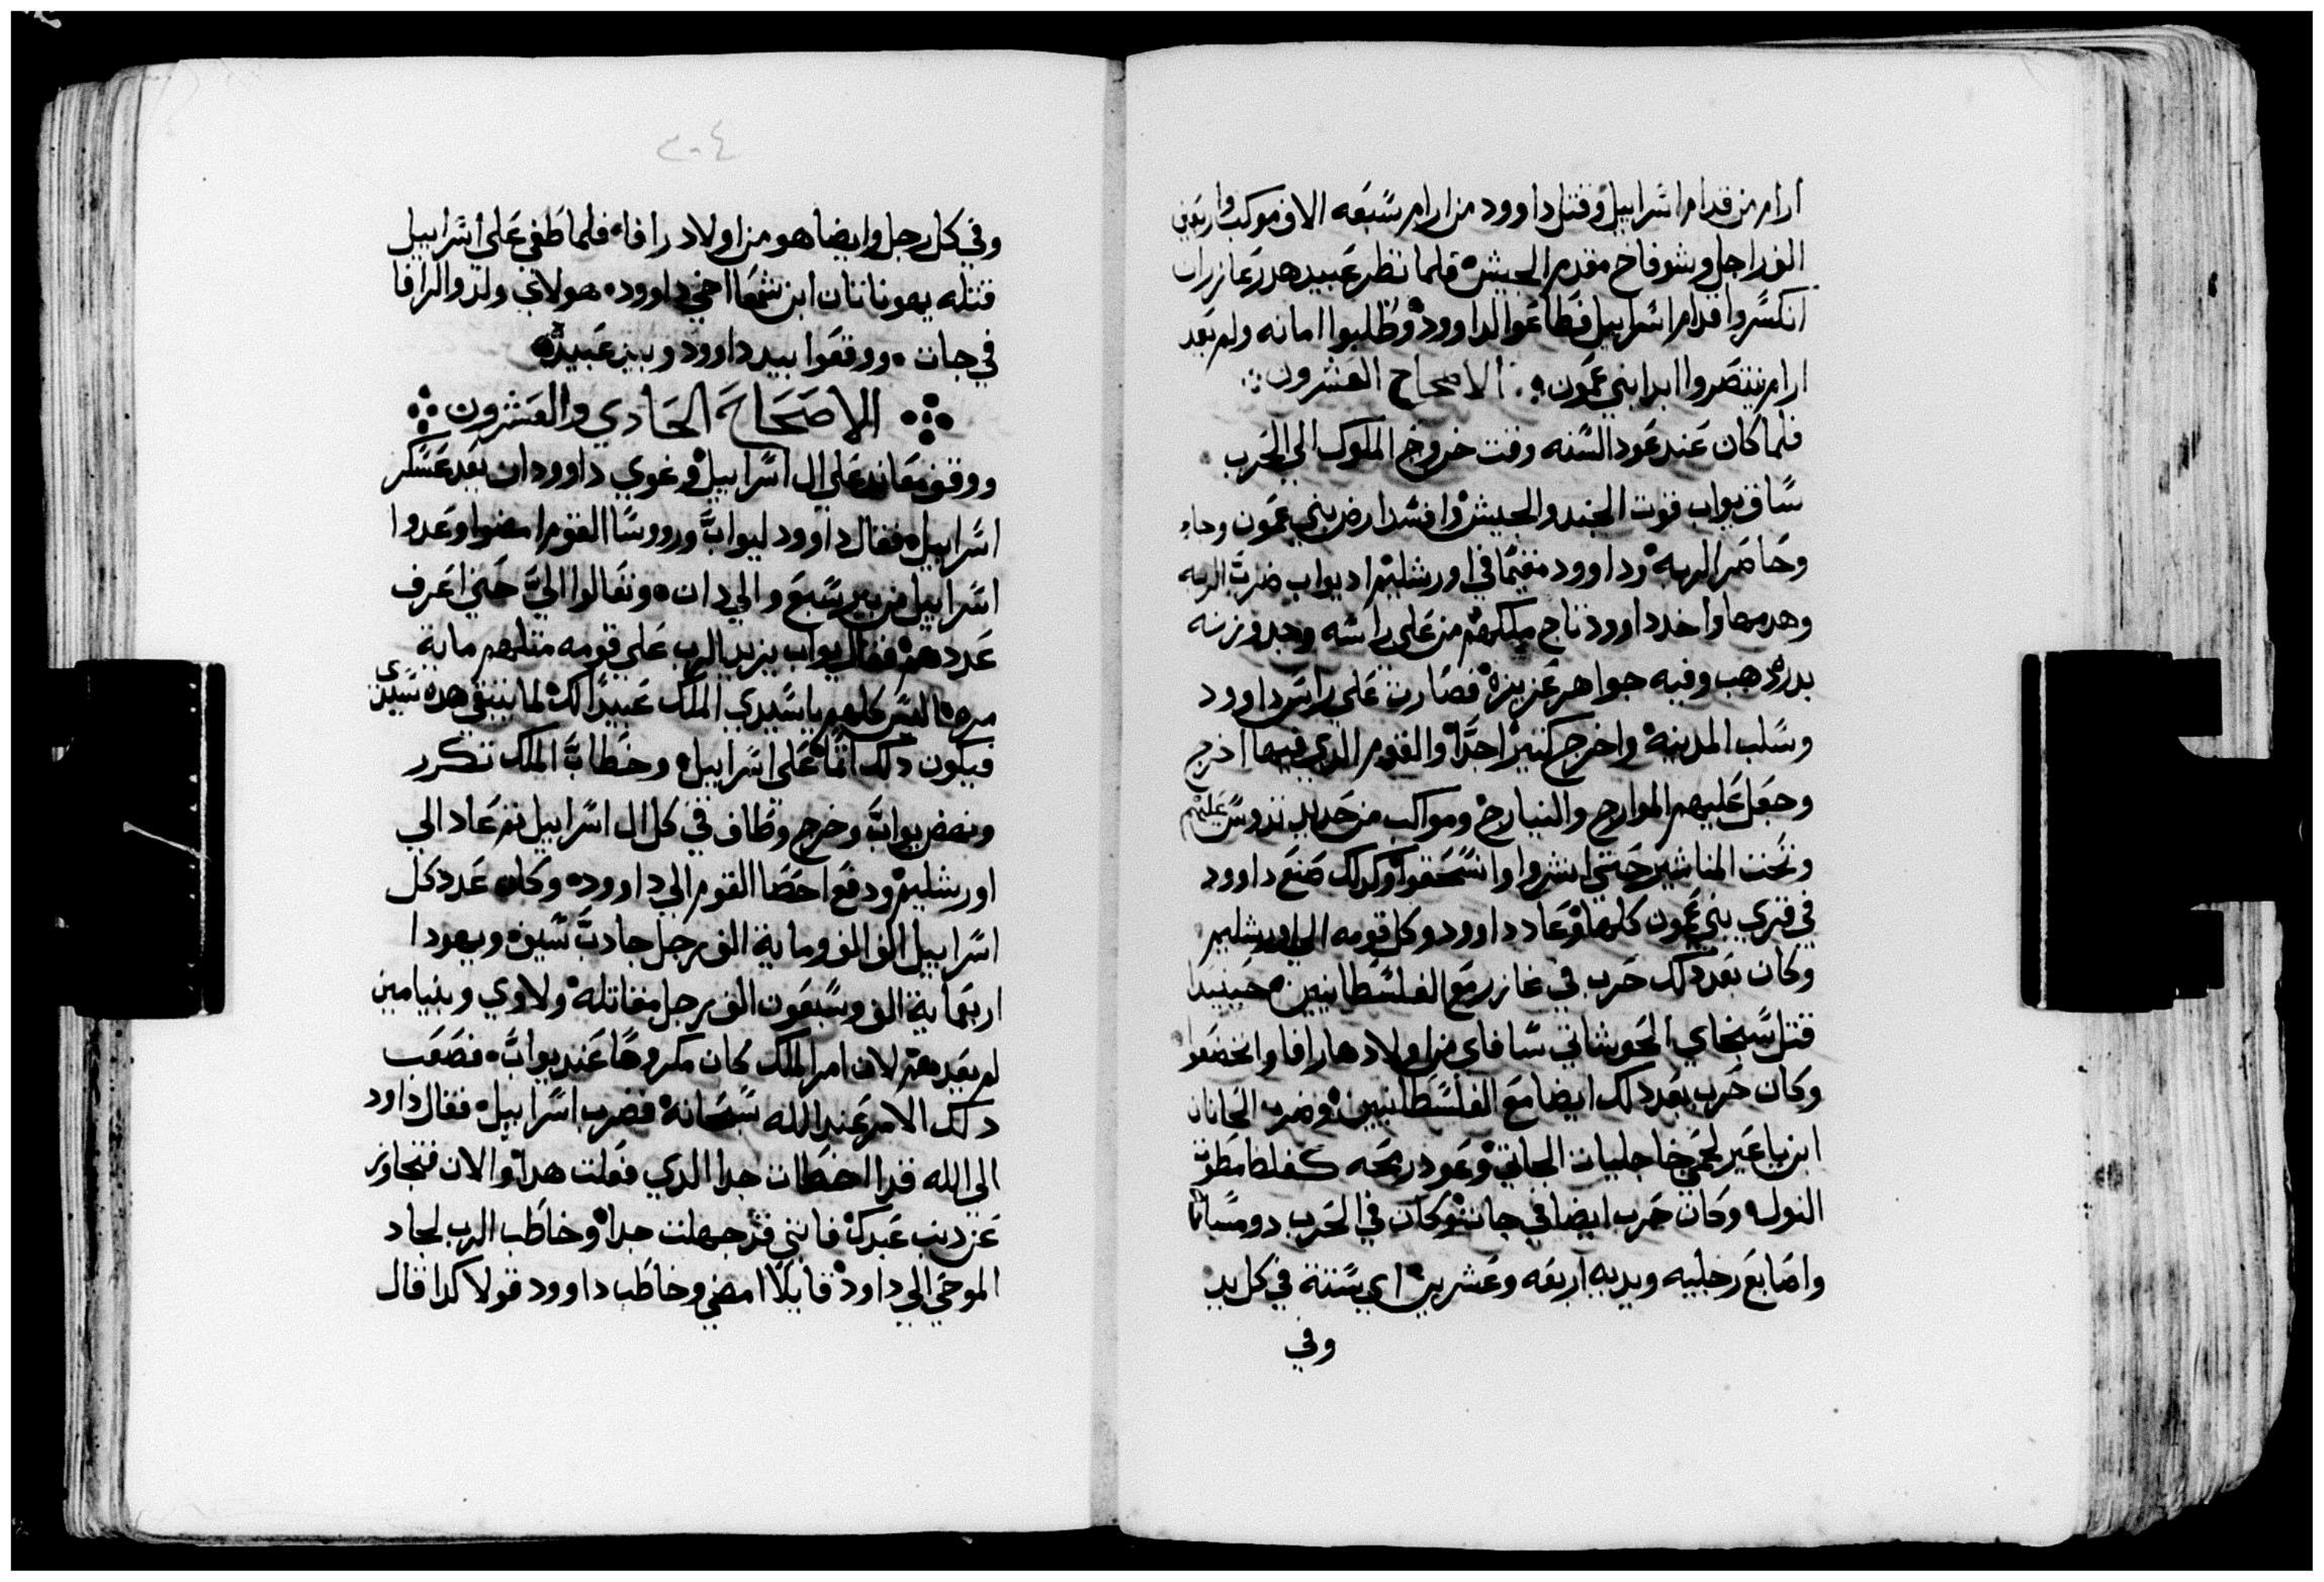 ارام من قدام اسراييل وقتل داوود من ارام سبعه الاف موكب واربعين
الف راجل وشوفاخ مقدم الجيش فلما نظر عبيد هدرعازر ان
انكسروا قدام اسراييل فطاعوا لداوود وطلبوا امانه ولم يعد
ارام ينتصروا ابدا بني عمون الاصحاح العشرون
فلما كان عند عود السنه وقت خروج الملوك الي الحرب
ساق يواب قوت الجند والجيش وافسد ارض بني عمون وجاء
وحاصر الربه وداوود مقيما في اورشليم اد يواب ضرب الربه
وهدمها واخد داوود تاج ملكهم من علي راسه وجد وزنه
بدره دهب وفيه جواهر عزيزة فصارت علي راس داوود
وسلب المدينة واخرج كتيرا جدا والقوم الدي فيها اخرج
وجعل عليهم الموارج والنيارج ومواكب من حديد تدوس عليهم
وتحت المناشير حتي انشروا وانسحقوا وكدلك صنع داوود
في قري بني عمون كلها وعاد داوود وكل قومه الي اورشليم
وكان بعد دلك حرب في غازر مع الفلسطانيين حينيدا
قتل سبخاي الحوشاتي سافاي من اولاد هارافا وانخضعوا
وكان حرب بعد دلك ايضا مع الفلسطانيين وضرب الحانان
ابن ياعير لحمي اخا جليات الجاتي وعود رمحه كغلط امطوت
النول وكان حرب ايضا في جات وكان في الحرب دو مسانا
واصابع رجليه ويديه اربعه وعشرين اي ستة في كل يد
وفي
٢٠٤
وفي كل رجل وايضا هو من اولاد رافا فلما طغي علي اسراييل
قتله يهوناتان ابن شمعا اخي داوود هولاي ولدوا لرافا
في جات ووقعوا بيد داوود وبيد عبيده
الاصحاح الحادي والعشرون
ووقف معاند علي ال اسراييل وغوي داوود ان يعد عسكر
اسراييل فقال داوود ليواب ورووسا القوم امضوا وعدوا
اسراييل من بير سبع والي دان وتعالوا الي حتي اعرف
عددهم فقال يواب يزيد الرب علي قومه متلهم ماية
مره اليس كلهم يا سيدي الملك عبيدا لك لما يبتغي هده سيدي
فيكون دلك اتما علي اسراييل وخطاب الملك تكرر
ونهض يواب وخرج وطاف في كل ال اسراييل تم عاد الي
اورشليم ودفع احصا القوم الي داوود وكان عدد كل
اسراييل الف الف وماية الف رجل جادب سيف ويهودا
اربعماية الف وسبعون الف رجل مقاتلة ولاوي وبنيامين
لم يعدهم لان امر الملك كان مكروها عند يواب فصعب
دلك الامر عند الله سبحانة فضرب اسراييل فقال داود
الي الله قد اخطات جدا الدي فعلت هدا والان فتجاوز
عن دنب عبدك فانني قد جهلت جدا وخاطب الرب لجاد
الموحي الي داود قايلا امضي وخاطب داوود قولا كدا قال